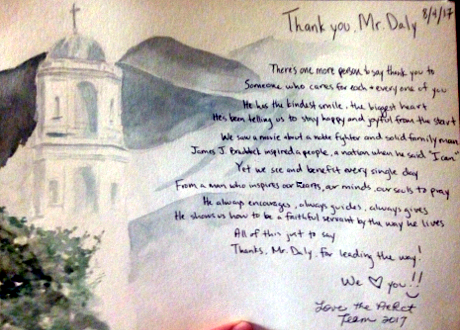 Thank you, Mr. Daly
8/4/17
There's one more person to say thank you to
Someone who cares for each + every one of you
He has the kindest smile, the biggest heart
He's been telling us to stay happy and joyful from the start
We saw a movie about a noble fighter and solid family man
James J. Braddock inspired a people, a nation when he said "I can"
Yet we see and benefit every single day
From a man who inspires our hearts, our minds, our souls to pray
He always encourages, always guides, always gives
He shows us how to be a faithful servant by the way he lives
All of this just to say
Thanks, Mr. Daly, for leading the way!
We ♡ you!!
Love the
Team 2017